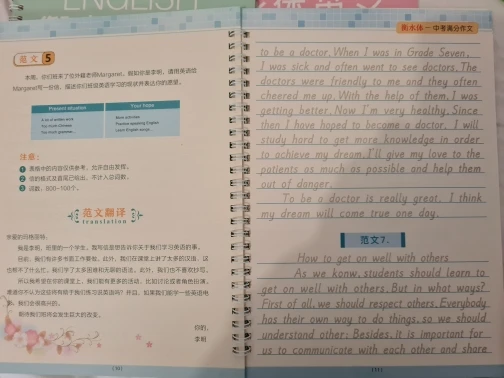 ENGLISH
范文 5
本周,你们班来了位外籍老师Margaret,假如你是李明,请用英语给
Margaret写一份信,描述你们班级英语学习的现状并表达你的愿望。
Present situation
Your hope
A lot of written work
More activities
Too much Chinese
Practice speaking English
Too much grammar...
Learn English songs...
注意:
1 表格中的内容仅供参考,允许自由发挥。
2 信的格式及首尾已给出,不计入总词数。
3 词数:800-100个。
范文翻译
translation
亲爱的玛格丽特:
我是李明,班里的一个学生。我写信是想告诉你关于我们学习英语的事。
目前,我们有许多书面工作要做。此外,我们在课堂上讲了太多的汉语,
也帮不了什么忙。我们学了太多困难和无聊的语法。此外,我们也不喜欢抄写。
所以我希望在你的课堂上,我们能有更多的活动,比如讨论或者角色扮演。
期待我们班将会发生巨大的改变。
你的,
李明
衡水体—中考满分作文
to be a doctor. When I was in Grade Seven,
I was sick and often went to see doctors. The
doctors were friendly to me and they often
cheered me up. With the help of them, I was
getting better. Now I'm very healthy. Since
then I have hoped to become a doctor. I will
study hard to get more knowledge in order
to achieve my dream. I'll give my love to the
patients as much as possible and help them
out of danger.
To be a doctor is really great. I think
my dream will come true one day.
范文7.
How to get on well with others
As we konw, students should learn to
get on well with others. But in what ways?
First of all, we should respect others. Everybody
has their own way to do things, so we should
understand other. Besides, it is important for
us to communicate with each other and share